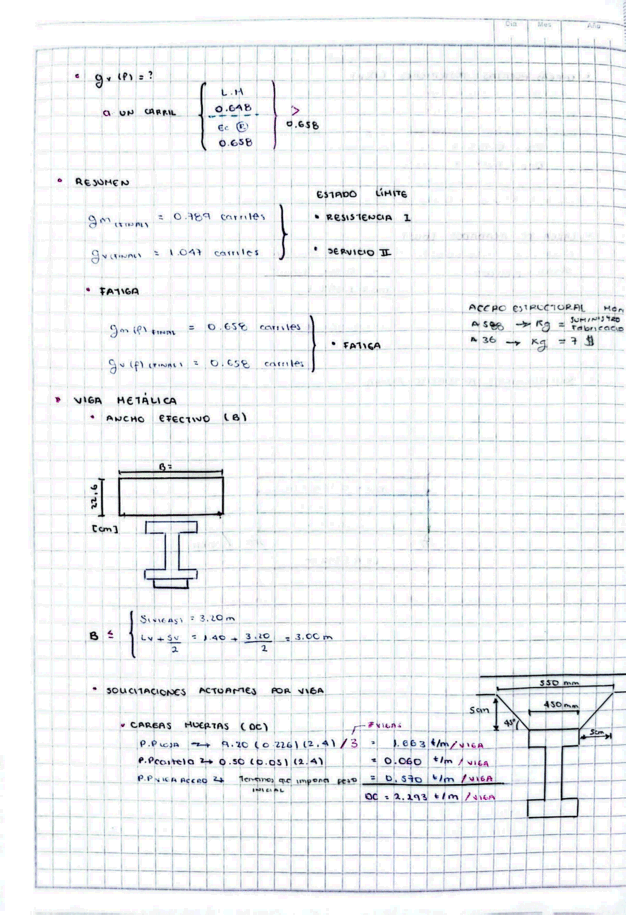 Día Mes Año
• gv (P) = ?
a UN CARRIL
L.M
0.648
Ec Ⓔ
0.658
> 0.658
• RESUMEN
gm (FINAL) = 0.789 carriles
gv (FINAL) = 1.047 carriles
ESTADO LÍMITE
• RESISTENCIA I
• SERVICIO II
• FATIGA
gm (P) FINAL = 0.658 carriles
gv (f) (FINAL) = 0.658 carriles
• FATIGA
ACERO ESTRUCTURAL Mon
A 588 → Kg = SUMINISTRO Fabricacio
A 36 → Kg = 7 $
• VIGA METÁLICA
• ANCHO EFECTIVO (B)
B=
22,6
[cm]
B ≤
S(VIGAS) = 3.20 m
Lv + Sv/2 = 1.40 + 3.20/2 = 3.00 m
• SOLICITACIONES ACTUANTES POR VIGA
• CARGAS MUERTAS (DC)
3 VIGAS
P.P LOSA → 9.20 (0.226) (2.4) / 3 = 1.663 t/m / VIGA
P.P cartela → 0.50 (0.05) (2.4) = 0.060 t/m / VIGA
P.P VIGA ACERO → Tenemos qe imponer peso INICIAL = 0.570 t/m / VIGA
DC = 2.293 t/m / VIGA
550 mm
450 mm
5cm
45°
5cm